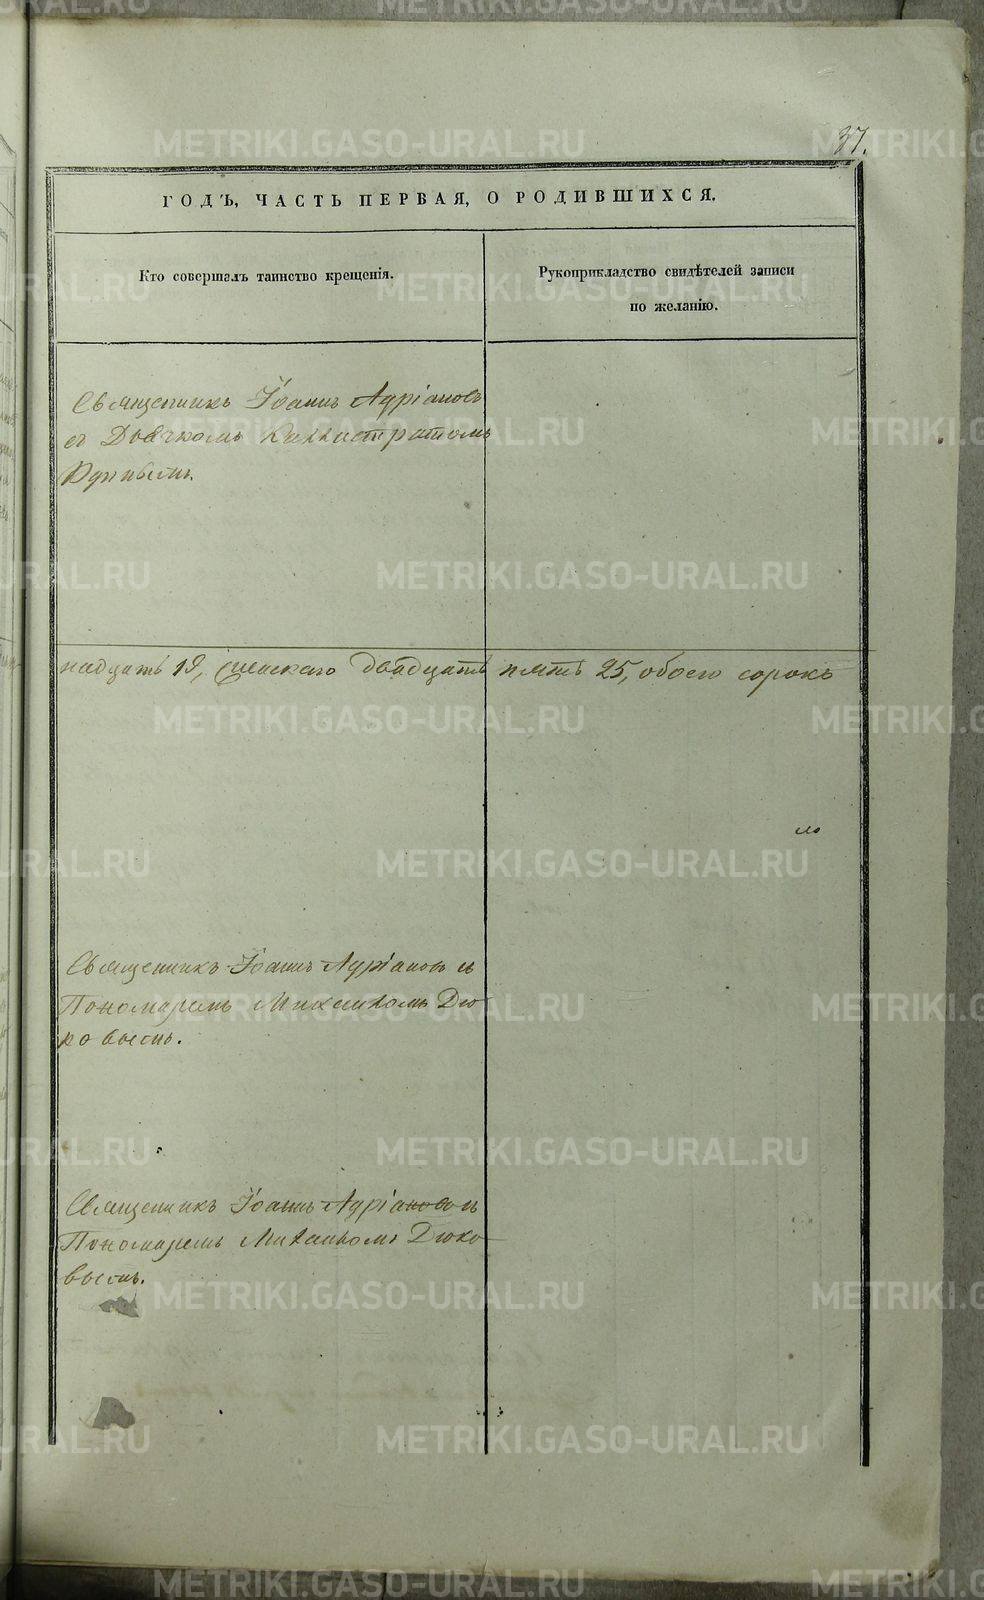 37.
ГОДЪ, ЧАСТЬ ПЕРВАЯ, О РОДИВШИХСЯ.
Кто совершалъ таинство крещенія.
Рукоприкладство свидѣтелей записи
по желанію.
Священникъ Іоаннъ Адріановъ
съ Дьячкомъ Каллистратомъ
надцать 19, женскаго двадцать пять 25, обоего сорокъ
Священникъ Іоаннъ Адріановъ съ
Пономаремъ Михаиломъ Дюко
вымъ.
Священникъ Іоаннъ Адріановъ съ
Пономаремъ Михаиломъ Дюко-
вымъ.
METRIKI.GASO-URAL.RU